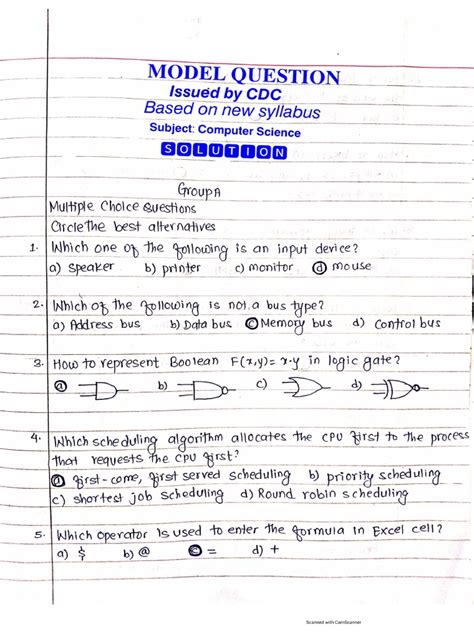 MODEL QUESTION
Issued by CDC
Based on new syllabus
Subject: Computer Science
SOLUTION
Group A
Multiple Choice Questions
Circle the best alternatives
1. Which one of the following is an input device?
a) speaker b) printer c) monitor d) mouse
2. Which of the following is not a bus type?
a) Address bus b) Data bus c) Memory bus d) control bus
3. How to represent Boolean F(x,y)= x.y in logic gate?
a) b) c) d)
4. Which scheduling algorithm allocates the CPU first to the process
that requests the CPU first?
a) first-come, first served scheduling b) priority scheduling
c) shortest job scheduling d) Round robin scheduling
5. Which operator is used to enter the formula in Excel cell?
a) $ b) @ c) = d) +
Scanned with CamScanner